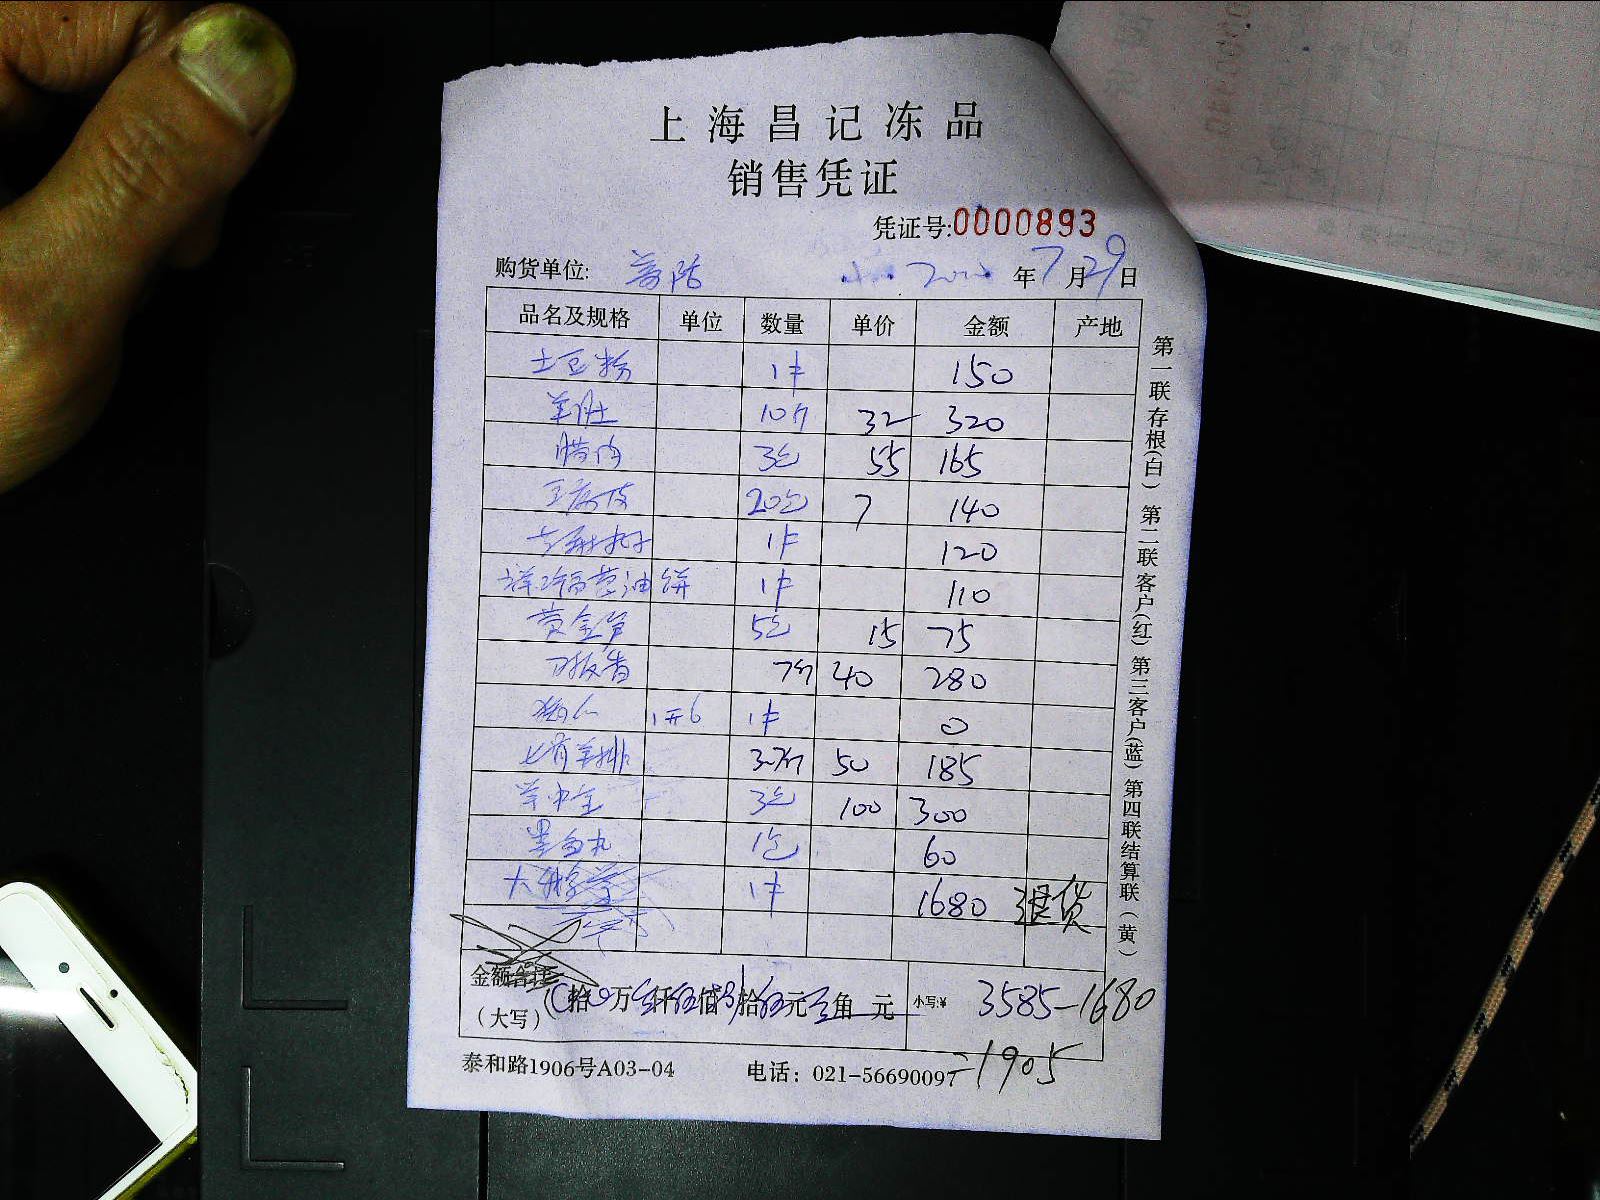 上海昌记冻品
销售凭证
凭证号:0000893
购货单位: 年7月29日
品名及规格 单位 数量 单价 金额 产地
土豆粉 1件 150
羊肚 10斤 32 320
腊肉 3包 55 165
豆腐皮 20包 7 140
1件 120
黄油饼 1件 110
黄金笋 5包 15 75
7斤 40 280
1开6 1件 0
七骨羊排 50 185
3包 100 300
墨鱼丸 1包 60
大 1件 1680 退货
金额合计
(大写) 拾 万 仟伍佰 拾伍元 角 元 小写:¥ 3585-1680
=1905
泰和路1906号A03-04 电话: 021-56690097
第一联存根(白) 第二联客户(红) 第三客户(蓝) 第四联结算联(黄)